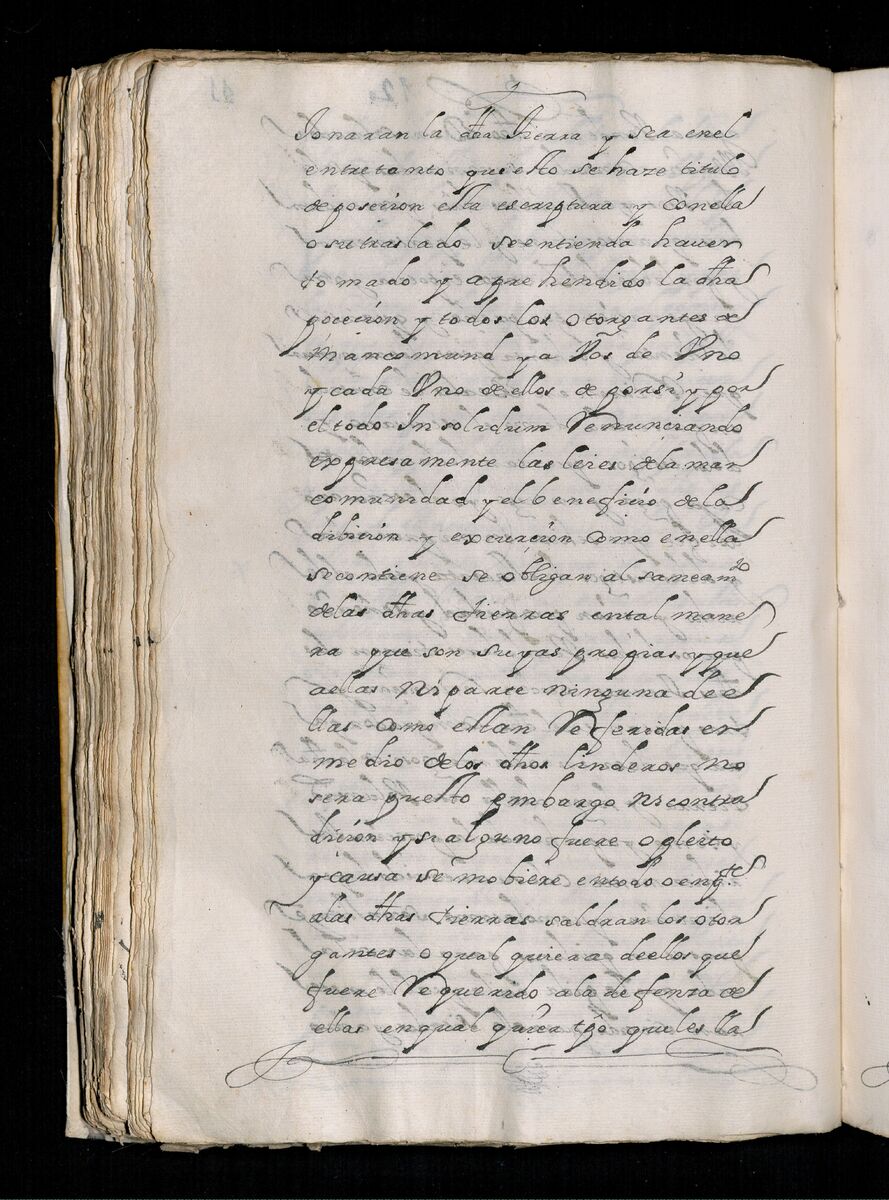 Jonaran la dha tierra y sea enel
entretanto que esto se haze titulo
de poseción esta escriptura y conella
o su traslado se entienda haver
tomado y aprehendido la dha
poceción y todos los otorgantes de
mancomund y a Vos de Vno
y cada Vno de ellos de porsi y por
el todo Insolidum Renunciando
expresamente las leies dela man
comunidad y el beneficio de la
dibición y excurción como enella
se contiene se obligan al saneamto
delas dhas tierras ental mane
ra que son suyas propias y que
aellas ni parte ninguna de e
llas como estan Referidas en
medio delos dhos linderos no
sera puesto embargo ni contra
dición y si alguno fuere o pleito
y causa se mobiere entodo o enpte
alas dhas tierras saldran los otor
gantes o qual quiera deellos que
fuere Requerido ala defenza de
ellas enqual quier tpo que les lla